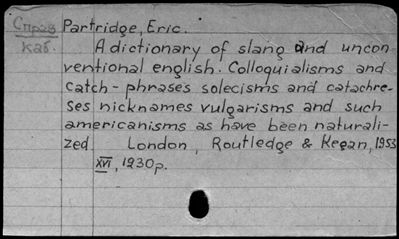 Справ Partridge, Eric.
каб. A dictionary of slang and uncon-
ventional english. Colloquialisms and
catch-phrases solecisms and catachre-
ses nicknames vulgarisms and such
americanisms as have been naturali-
zed London, Routledge & Kegan, 1953
XVI, 1230p.